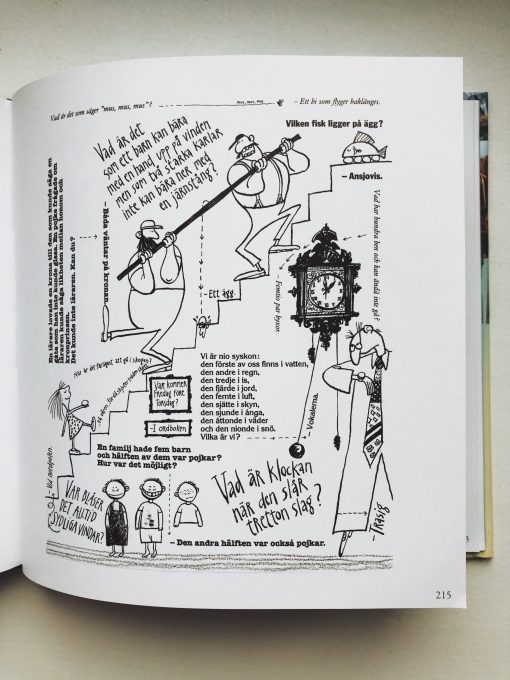 Vad är det som säger "mus, mus, mus"?
– Ett bi som flyger baklänges.
Vad är det
som ett barn kan bära
med en hand upp på vinden
men som två starka karlar
inte kan bära ner med
en järnstång?
– Ett ägg.
Vilken fisk ligger på ägg?
– Ansjovis.
En lärare lovade en krona till den som kunde säga en
läraren kunde säga likheten mellan honom och
kronprinsen.
Det kunde inte läraren. Kan du?
– Båda väntar på kronan.
Vad har hundra ben och kan ändå inte gå?
Femtio par byxor.
När är det farligast att gå i skogen?
Var kommer
fredag före
torsdag?
– I ordboken
Vi är nio syskon:
den förste av oss finns i vatten,
den andre i regn,
den tredje i is,
den fjärde i jord,
den femte i luft,
den sjätte i skyn,
den sjunde i ånga,
den åttonde i väder
och den nionde i snö.
Vilka är vi?
– Vokalerna.
En familj hade fem barn
och hälften av dem var pojkar?
Hur var det möjligt?
– Den andra hälften var också pojkar.
Var blåser
det alltid
sydliga vindar?
– Vid nordpolen.
Vad är klockan
när den slår
tretton slag?
– Trasig
215